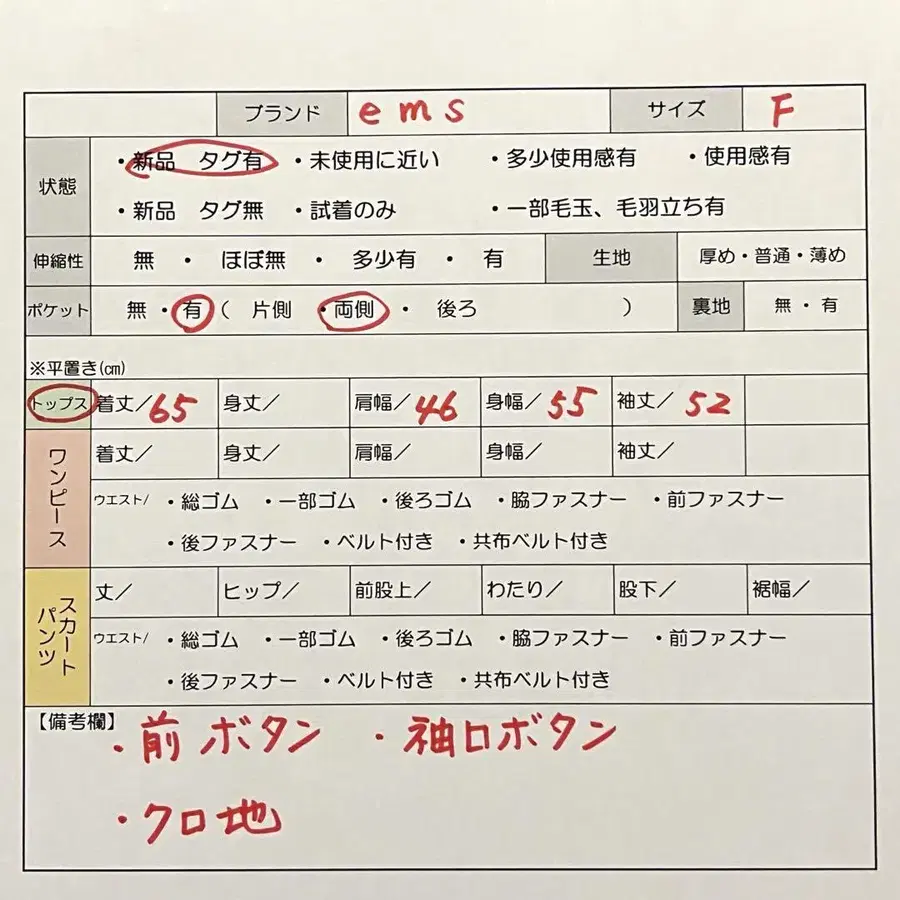 ブランド ems サイズ F
状態 ・新品 タグ有 ・未使用に近い ・多少使用感有 ・使用感有
・新品 タグ無 ・試着のみ ・一部毛玉、毛羽立ち有
伸縮性 無 ・ ほぼ無 ・ 多少有 ・ 有 生地 厚め・普通・薄め
ポケット 無・有（ 片側 ・両側 ・ 後ろ ） 裏地 無 ・ 有
※平置き(cm)
トップス 着丈／65 身丈／ 肩幅／46 身幅／55 袖丈／52
ワンピース 着丈／ 身丈／ 肩幅／ 身幅／ 袖丈／
ウエスト/ ・総ゴム ・一部ゴム ・後ろゴム ・脇ファスナー ・前ファスナー
・後ファスナー ・ベルト付き ・共布ベルト付き
スカート パンツ 丈／ ヒップ／ 前股上／ わたり／ 股下／ 裾幅／
ウエスト/ ・総ゴム ・一部ゴム ・後ろゴム ・脇ファスナー ・前ファスナー
・後ファスナー ・ベルト付き ・共布ベルト付き
【備考欄】
・前ボタン ・袖口ボタン
・クロ地